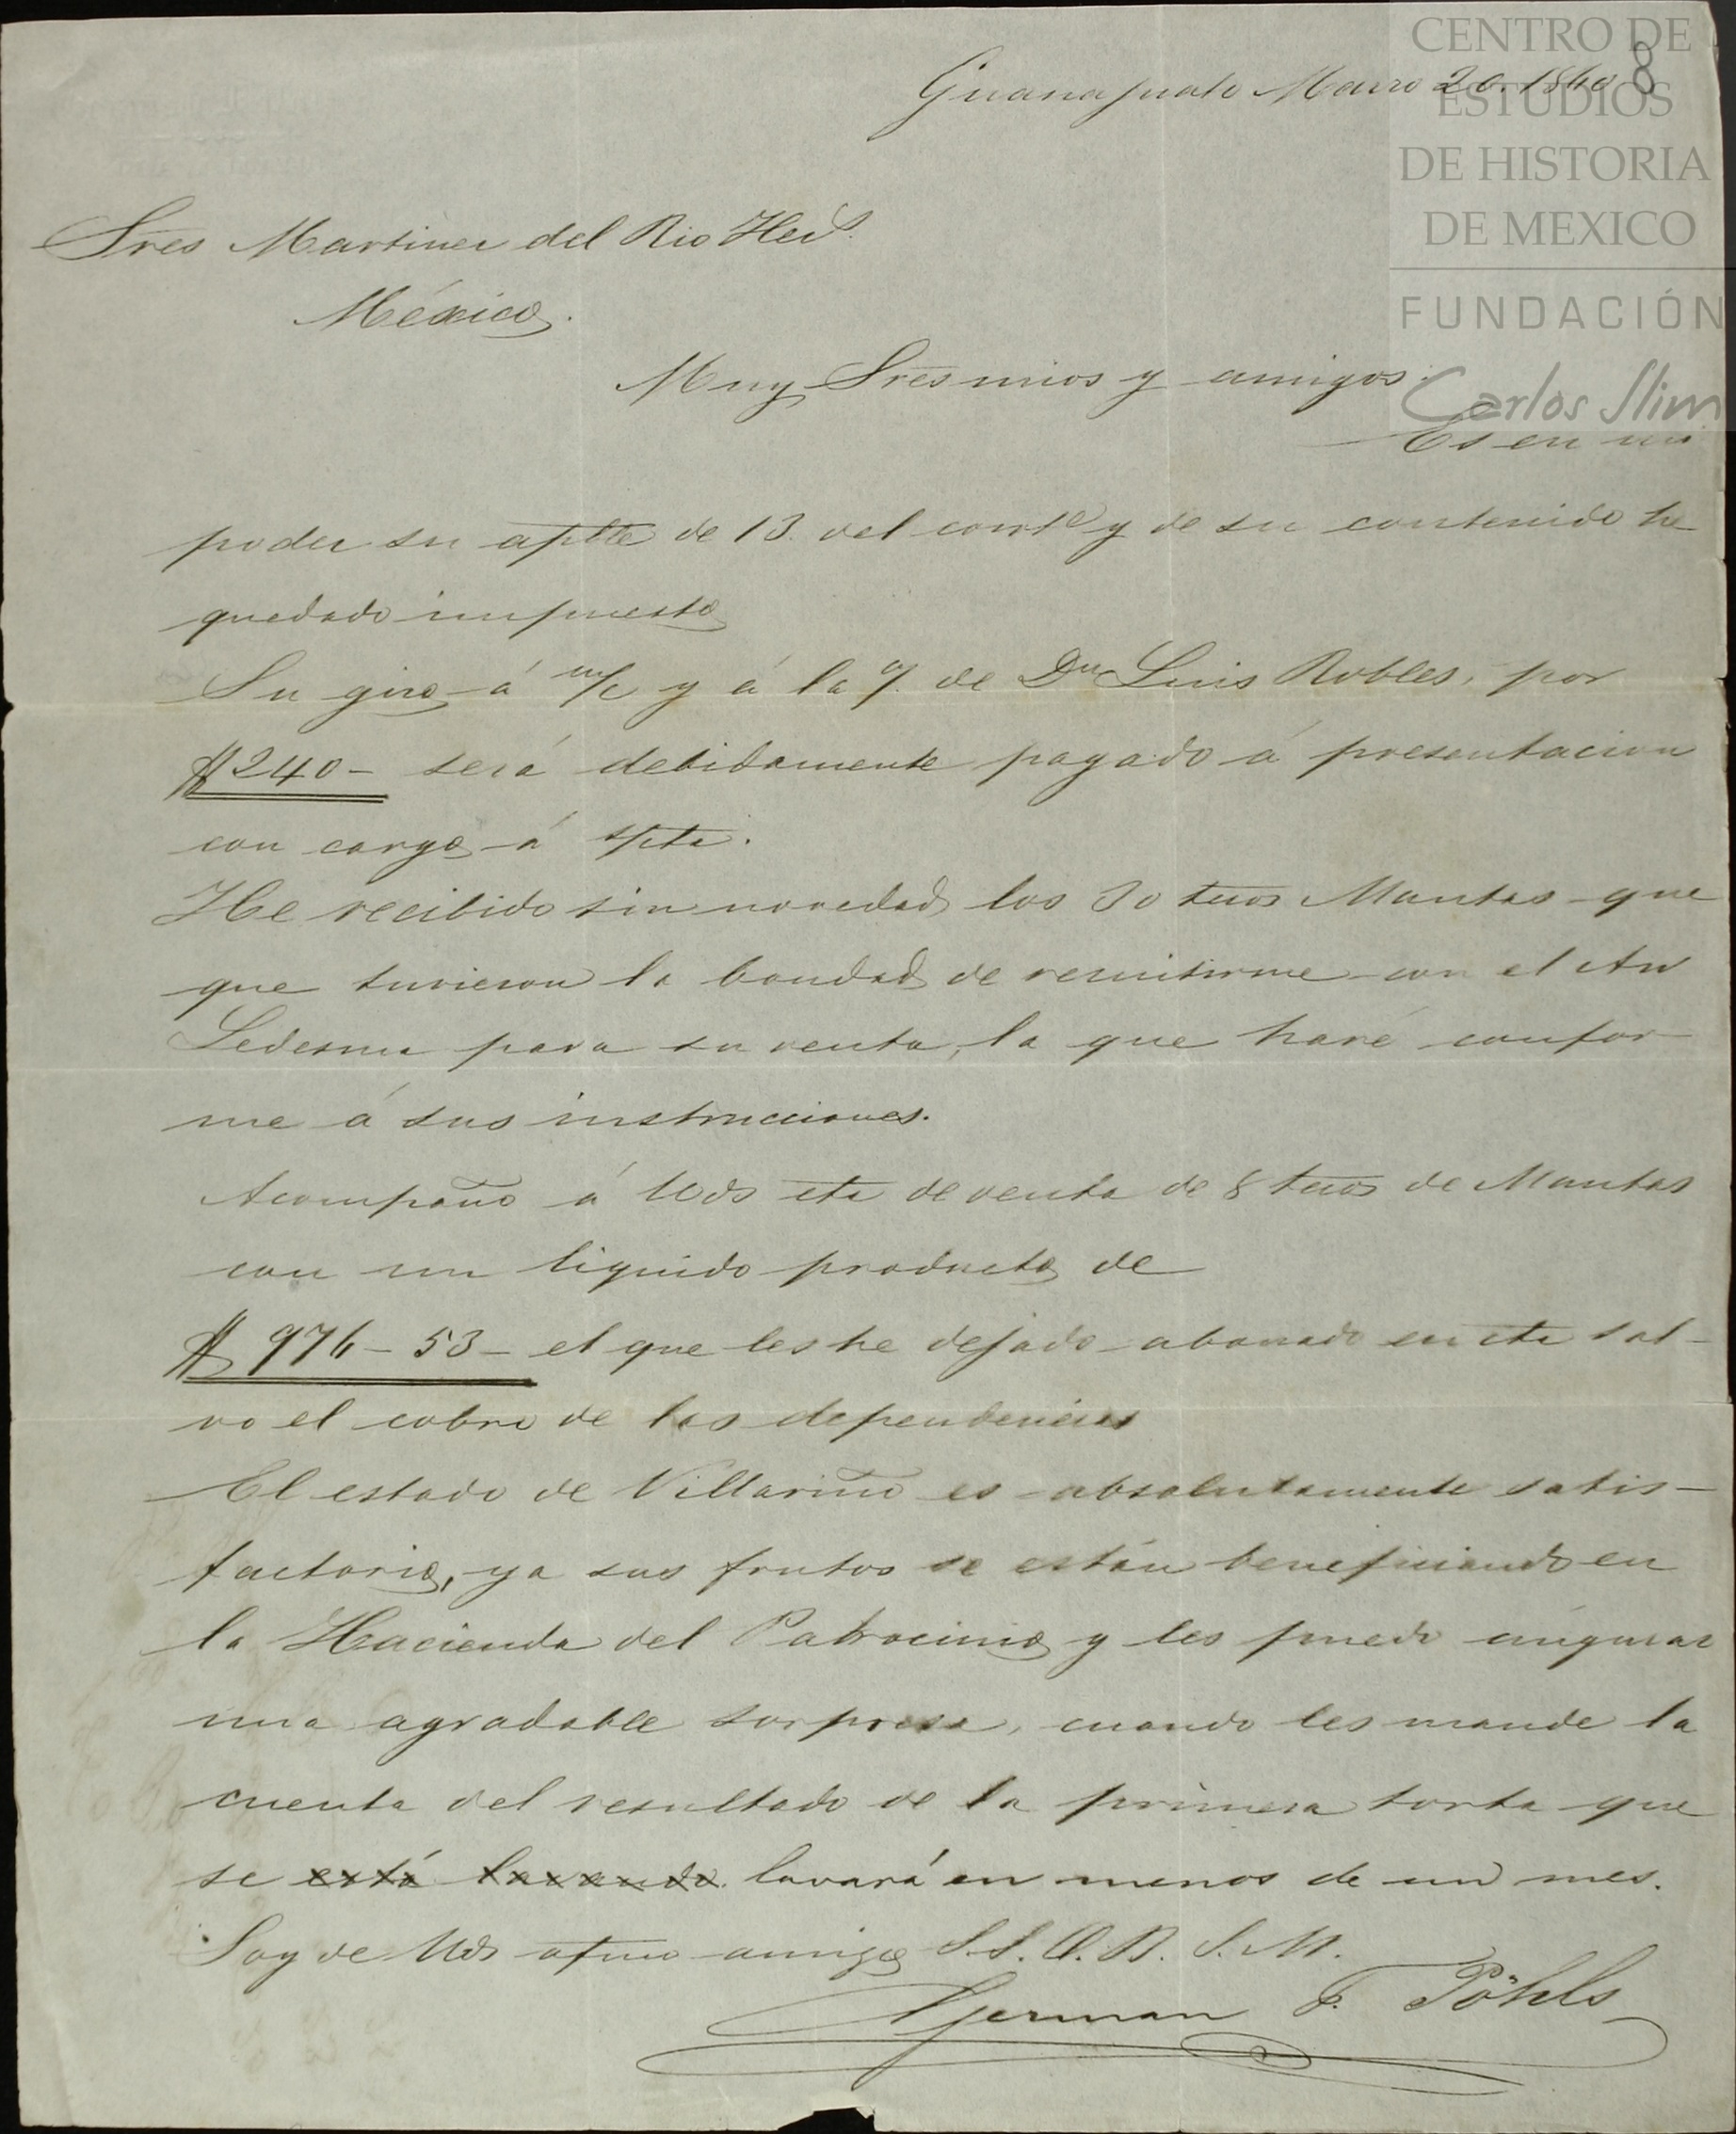 CENTRO DE
ESTUDIOS
DE HISTORIA
DE MEXICO
FUNDACIÓN
Carlos Slim
8
Guanajuato Marzo 20. 1860
Sres Martinez del Rio Hers.
México.
Muy Sres mios y amigos.
Es en mi
poder su apble de 13. del corrte y de su contenido he
quedado impuesto
Su giro á m/c y á la o/. de Dn Luis Robles, por
$240- será debidamente pagado á presentacion
con cargo á s/cta.
He recibido sin novedad los 30 tercs Mantas que
que tuvieron la bondad de remitirme con el Arro
Ledesma para su venta, la que haré confor-
me á sus instrucciones.
Acompaño á Uds cta de venta de 8 tercs de Mantas
con un liquido producto de
$ 976-53- el que les he dejado abonado en cta sal-
vo el cobro de las dependencias
El estado de Villariño es absolutamente satis-
factorio, ya sus frutos se están beneficiando en
la Hacienda del Patrocinio y les puedo augurar
una agradable sorpresa, cuando les mande la
cuenta del resultado de la primera torta que
se está lavando lavará en menos de un mes.
Soy de Uds afmo amigo S.S.Q.B.S.M.
German F. Pöhls